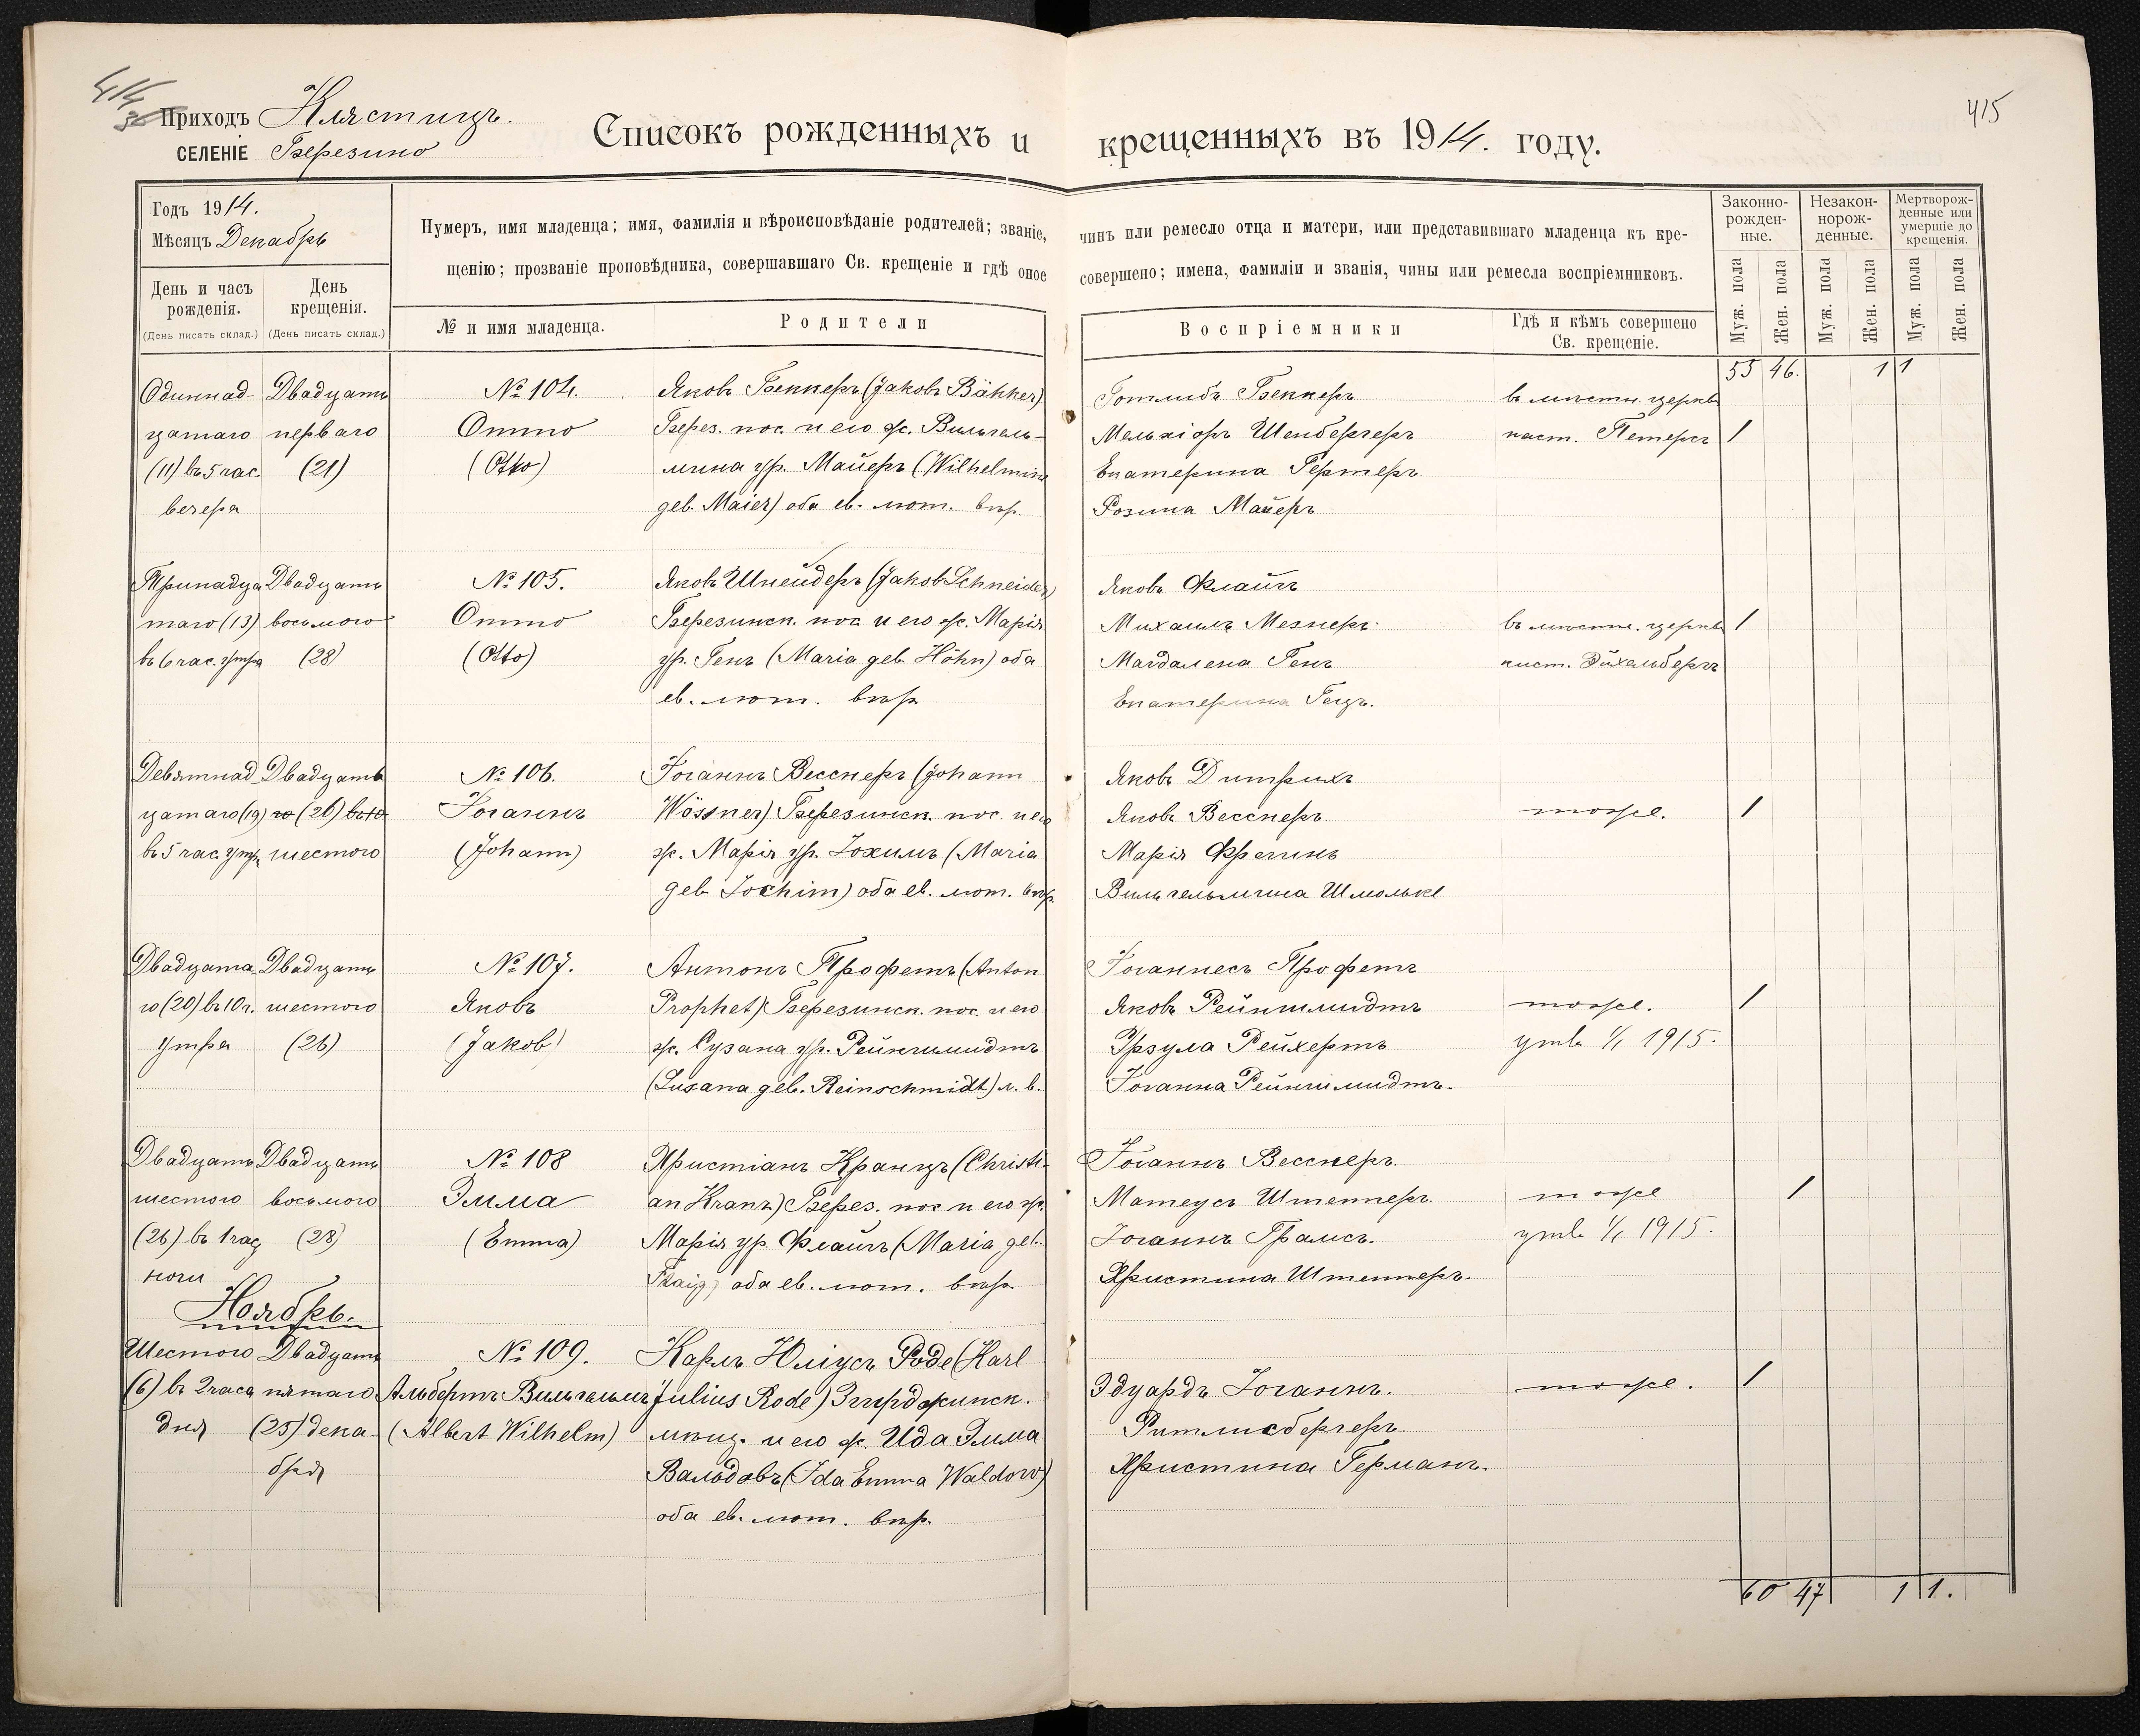 414
415
Приходъ Клястицъ.
СЕЛЕНІЕ Березино
Списокъ рожденныхъ и крещенныхъ въ 1914. году.
Годъ 1914.
Мѣсяцъ Декабрь
День и часъ рожденія.
(День писать склад.)
День крещенія.
(День писать склад.)
Нумеръ, имя младенца; имя, фамилія и вѣроисповѣданіе родителей; званіе, чинъ или ремесло отца и матери, или представившаго младенца къ кре-
щенію; прозваніе проповѣдника, совершавшаго Св. крещеніе и гдѣ оное совершено; имена, фамиліи и званія, чины или ремесла воспріемниковъ.
№ и имя младенца.
Родители
Воспріемники
Гдѣ и кѣмъ совершено
Св. крещеніе.
Законно-
рожден-
ные.
Незакон-
норож-
денные.
Мертворож-
денные или
умершіе до
крещенія.
Муж. пола
Жен. пола
Муж. пола
Жен. пола
Муж. пола
Жен. пола
55 46. 1 1
Одиннад-
цатаго
(11) въ 5 час.
вечера
Двадцать
перваго
(21)
№ 104.
Отто
(Otto)
Яковъ Беккеръ (Jakob Bähker)
Берез. пос. и его ж. Вильгель-
мина ур. Майеръ (Wilhelmine
geb. Maier) оба ев. лют. вѣр.
Готлибъ Беккеръ
Мелькіоръ Шенбергеръ
Екатерина Гертеръ.
Розина Майеръ
в мѣстн. церкв
паст. Петерсъ
1
Тринадца
таго (13)
въ 6 час. утра
Двадцать
восьмого
(28)
№ 105.
Отто
(Otto)
Яковъ Шнейдеръ (Jakob Schneider)
Березинск. пос. и его ж. Марія
ур. Генъ (Maria geb. Höhn) оба
ев. лют. вѣр.
Яковъ Флайгъ
Михаилъ Мезнеръ.
Магдалена Генъ
Екатерина Гецъ.
въ мѣстн. церкв
паст. Эйхельбергъ
1
Девятнад
цатаго (19)
въ 5 час. утр.
Двадцать
го (26) въ 10
шестого
№ 106.
Іоганнъ
(Johann)
Іоганнъ Весснеръ (Johann
Wössner) Березинск. пос. и его
ж. Марія ур. Іохимъ (Maria
geb. Jochim) оба ев. лют. вѣр.
Яковъ Дитрихъ
Яковъ Весснеръ
Марія Фрегинъ
Вильгельмина Шмольке
тоже.
1
Двадцата
го (20) въ 10 ч.
утра
Двадцать
шестого
(26)
№ 107.
Яковъ
(Jakob)
Антонъ Профетъ (Anton
Prophet) Березинск. пос. и его
ж. Сузана ур. Рейншмидтъ
(Susana geb. Reinschmidt) л. в.
Іоганнесъ Профетъ
Яковъ Рейншмидтъ
Урзула Рейхертъ
Іоганна Рейншмидтъ.
тоже.
утв. 1/1 1915.
1
Двадцать
шестого
(26) въ 1 час
ночи
Двадцать
восьмого
(28)
№ 108
Эмма
(Emma)
Христіанъ Кранцъ (Christi-
an Kranz) Берез. пос и его ж.
Марія ур. Флайгъ (Maria geb.
Flaig) оба ев. лют. вѣр.
Іоганнъ Весснеръ.
Матеусъ Штеннеръ.
Іоганнъ Грамсъ.
Христина Штеннеръ.
тоже
утв. 1/1 1915.
1
Ноябрь.
Шестого
(6) въ 2 часа
дня
Двадцать
пятаго
(25) дека-
бря
№ 109.
Альбертъ Вильгельмъ
(Albert Wilhelm)
Карлъ Юліусъ Роде (Karl
Julius Rode)
и его ж. Ида Эмма
Вальдовъ (Ida Emma Waldow)
оба ев. лют. вѣр.
Эдуардъ Іоганнъ.
Ритлисбергеръ.
Христина Германъ.
тоже.
1
60 47 1 1.